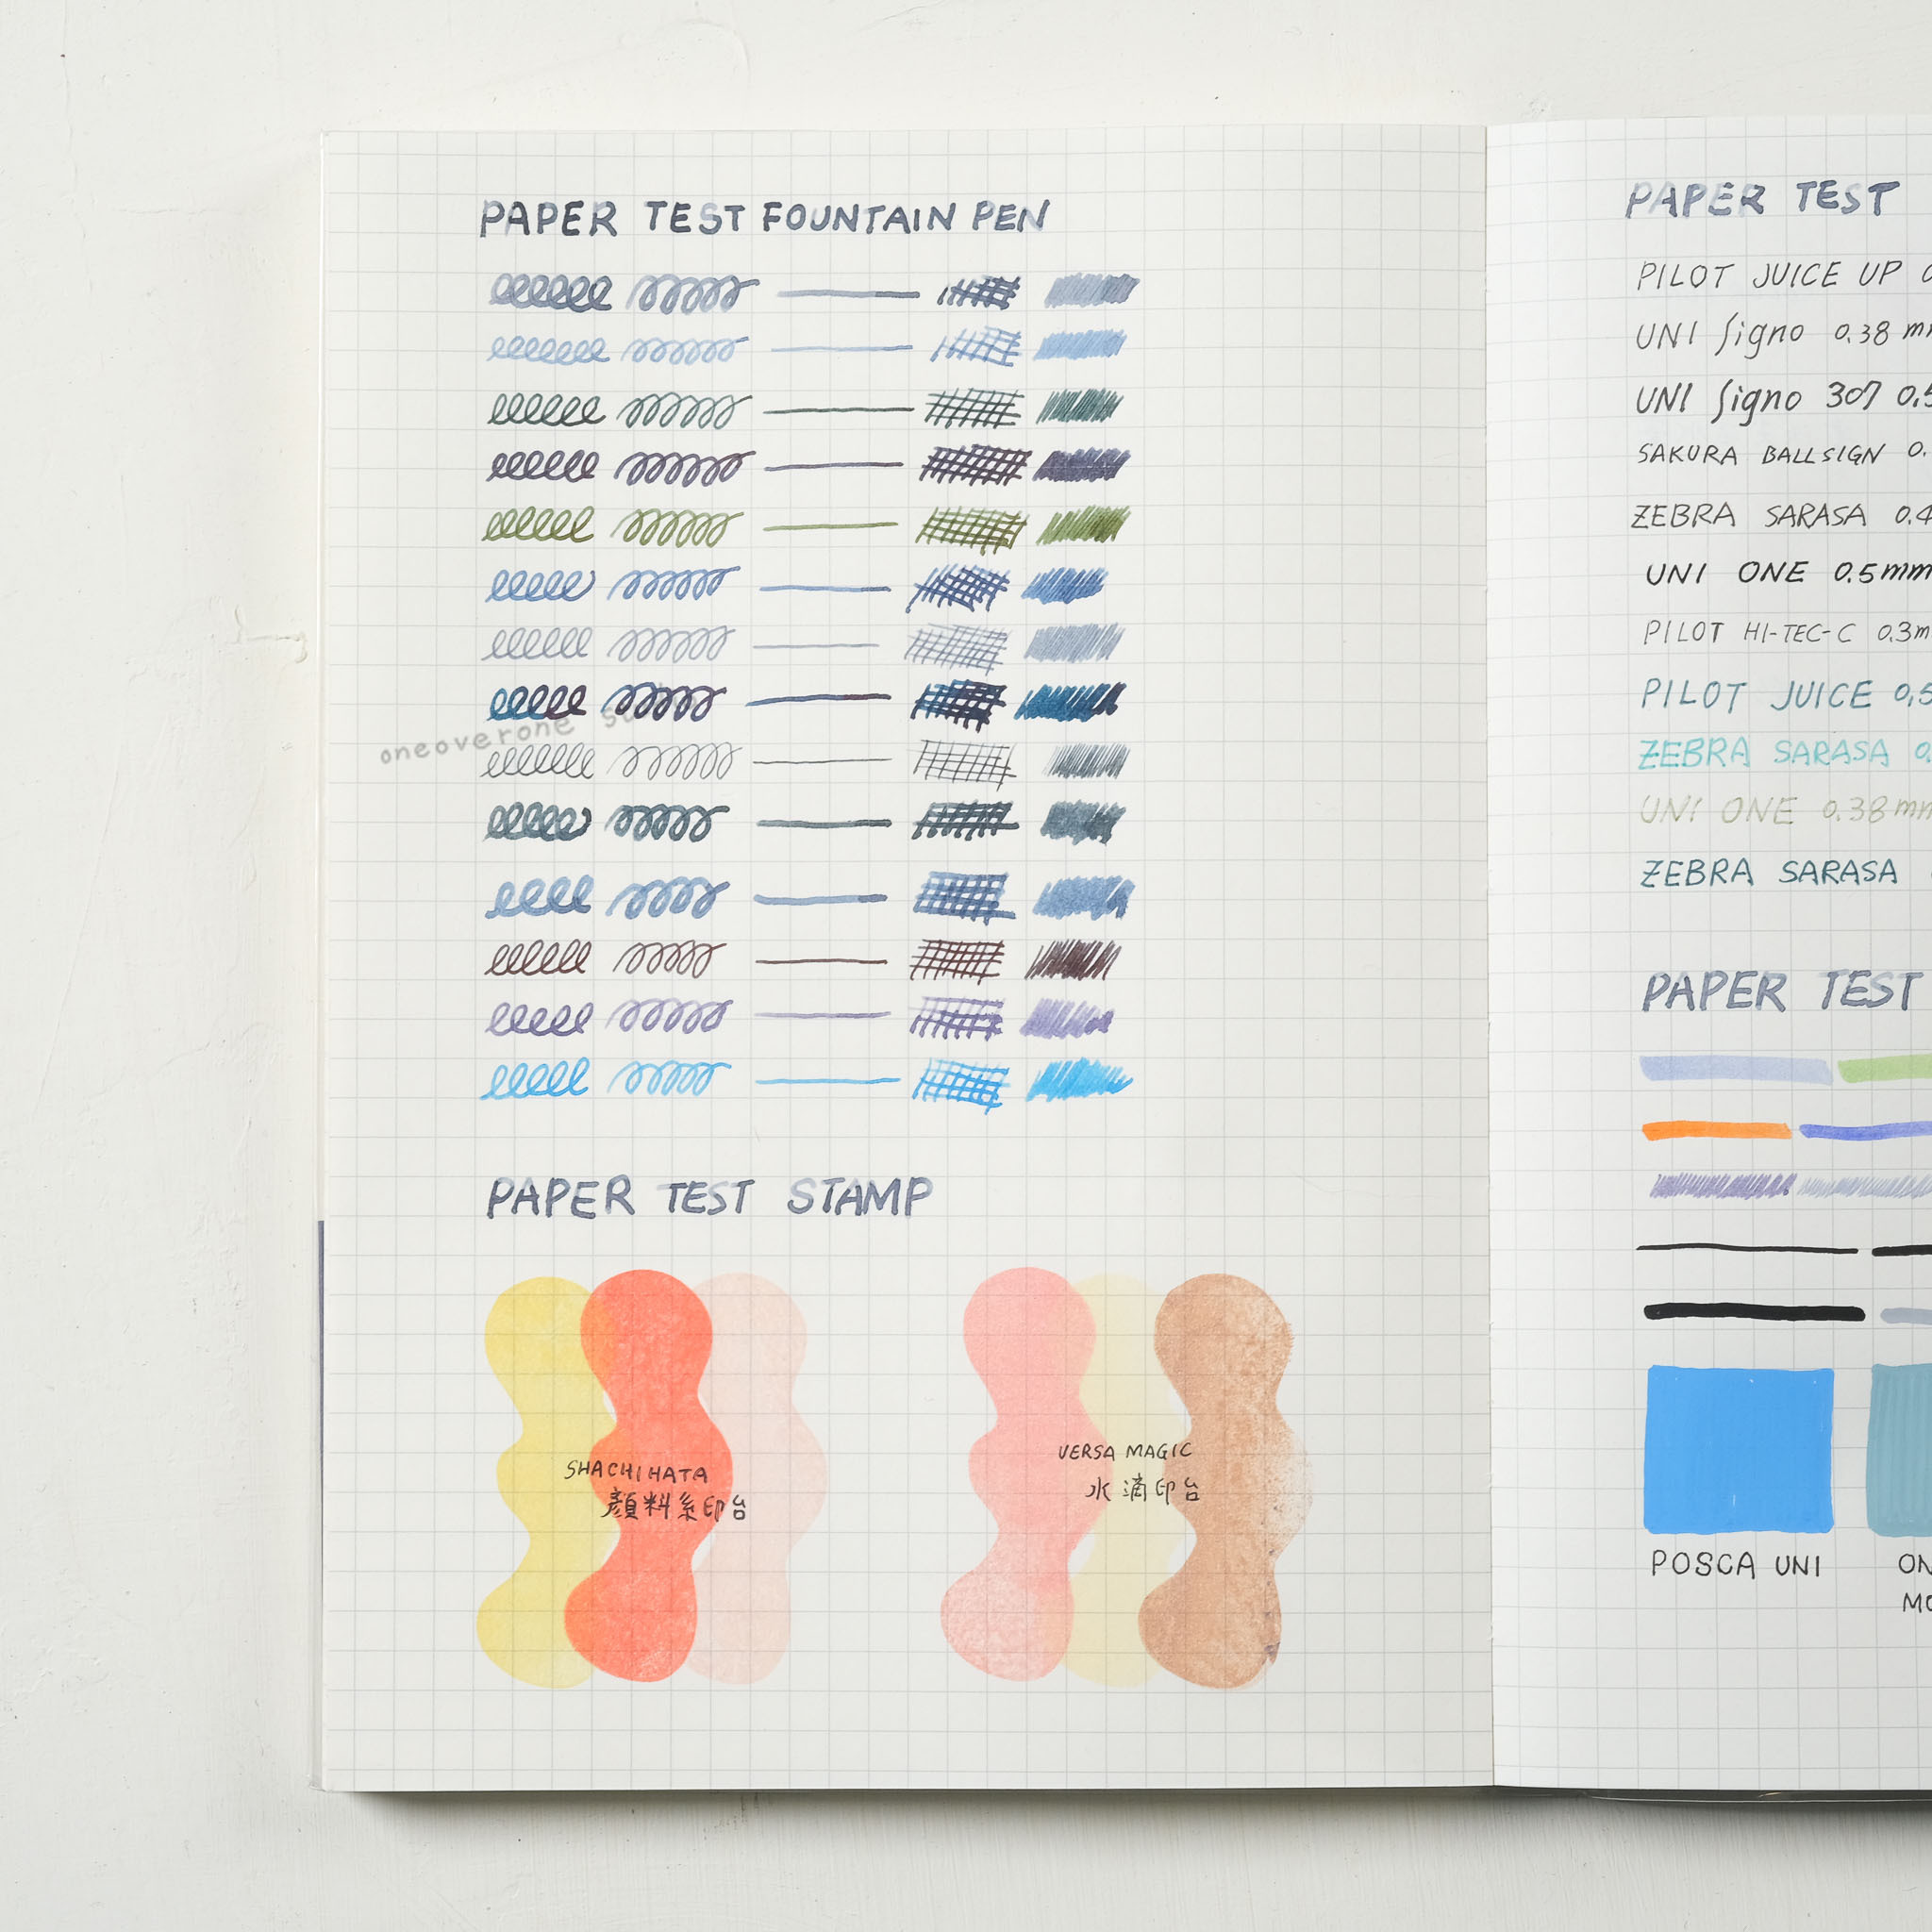 PAPER TEST FOUNTAIN PEN
oneoverone
PAPER TEST STAMP
SHACHIHATA
顏料系印台
VERSA MAGIC
水滴印台
PAPER TEST
PILOT JUICE UP
UNI Signo 0.38
UNI Signo 307
SAKURA BALLSIGN
ZEBRA SARASA
UNI ONE 0.5mm
PILOT HI-TEC-C
PILOT JUICE
ZEBRA SARASA
UNI ONE 0.38mm
ZEBRA SARASA
PAPER TEST
POSCA UNI